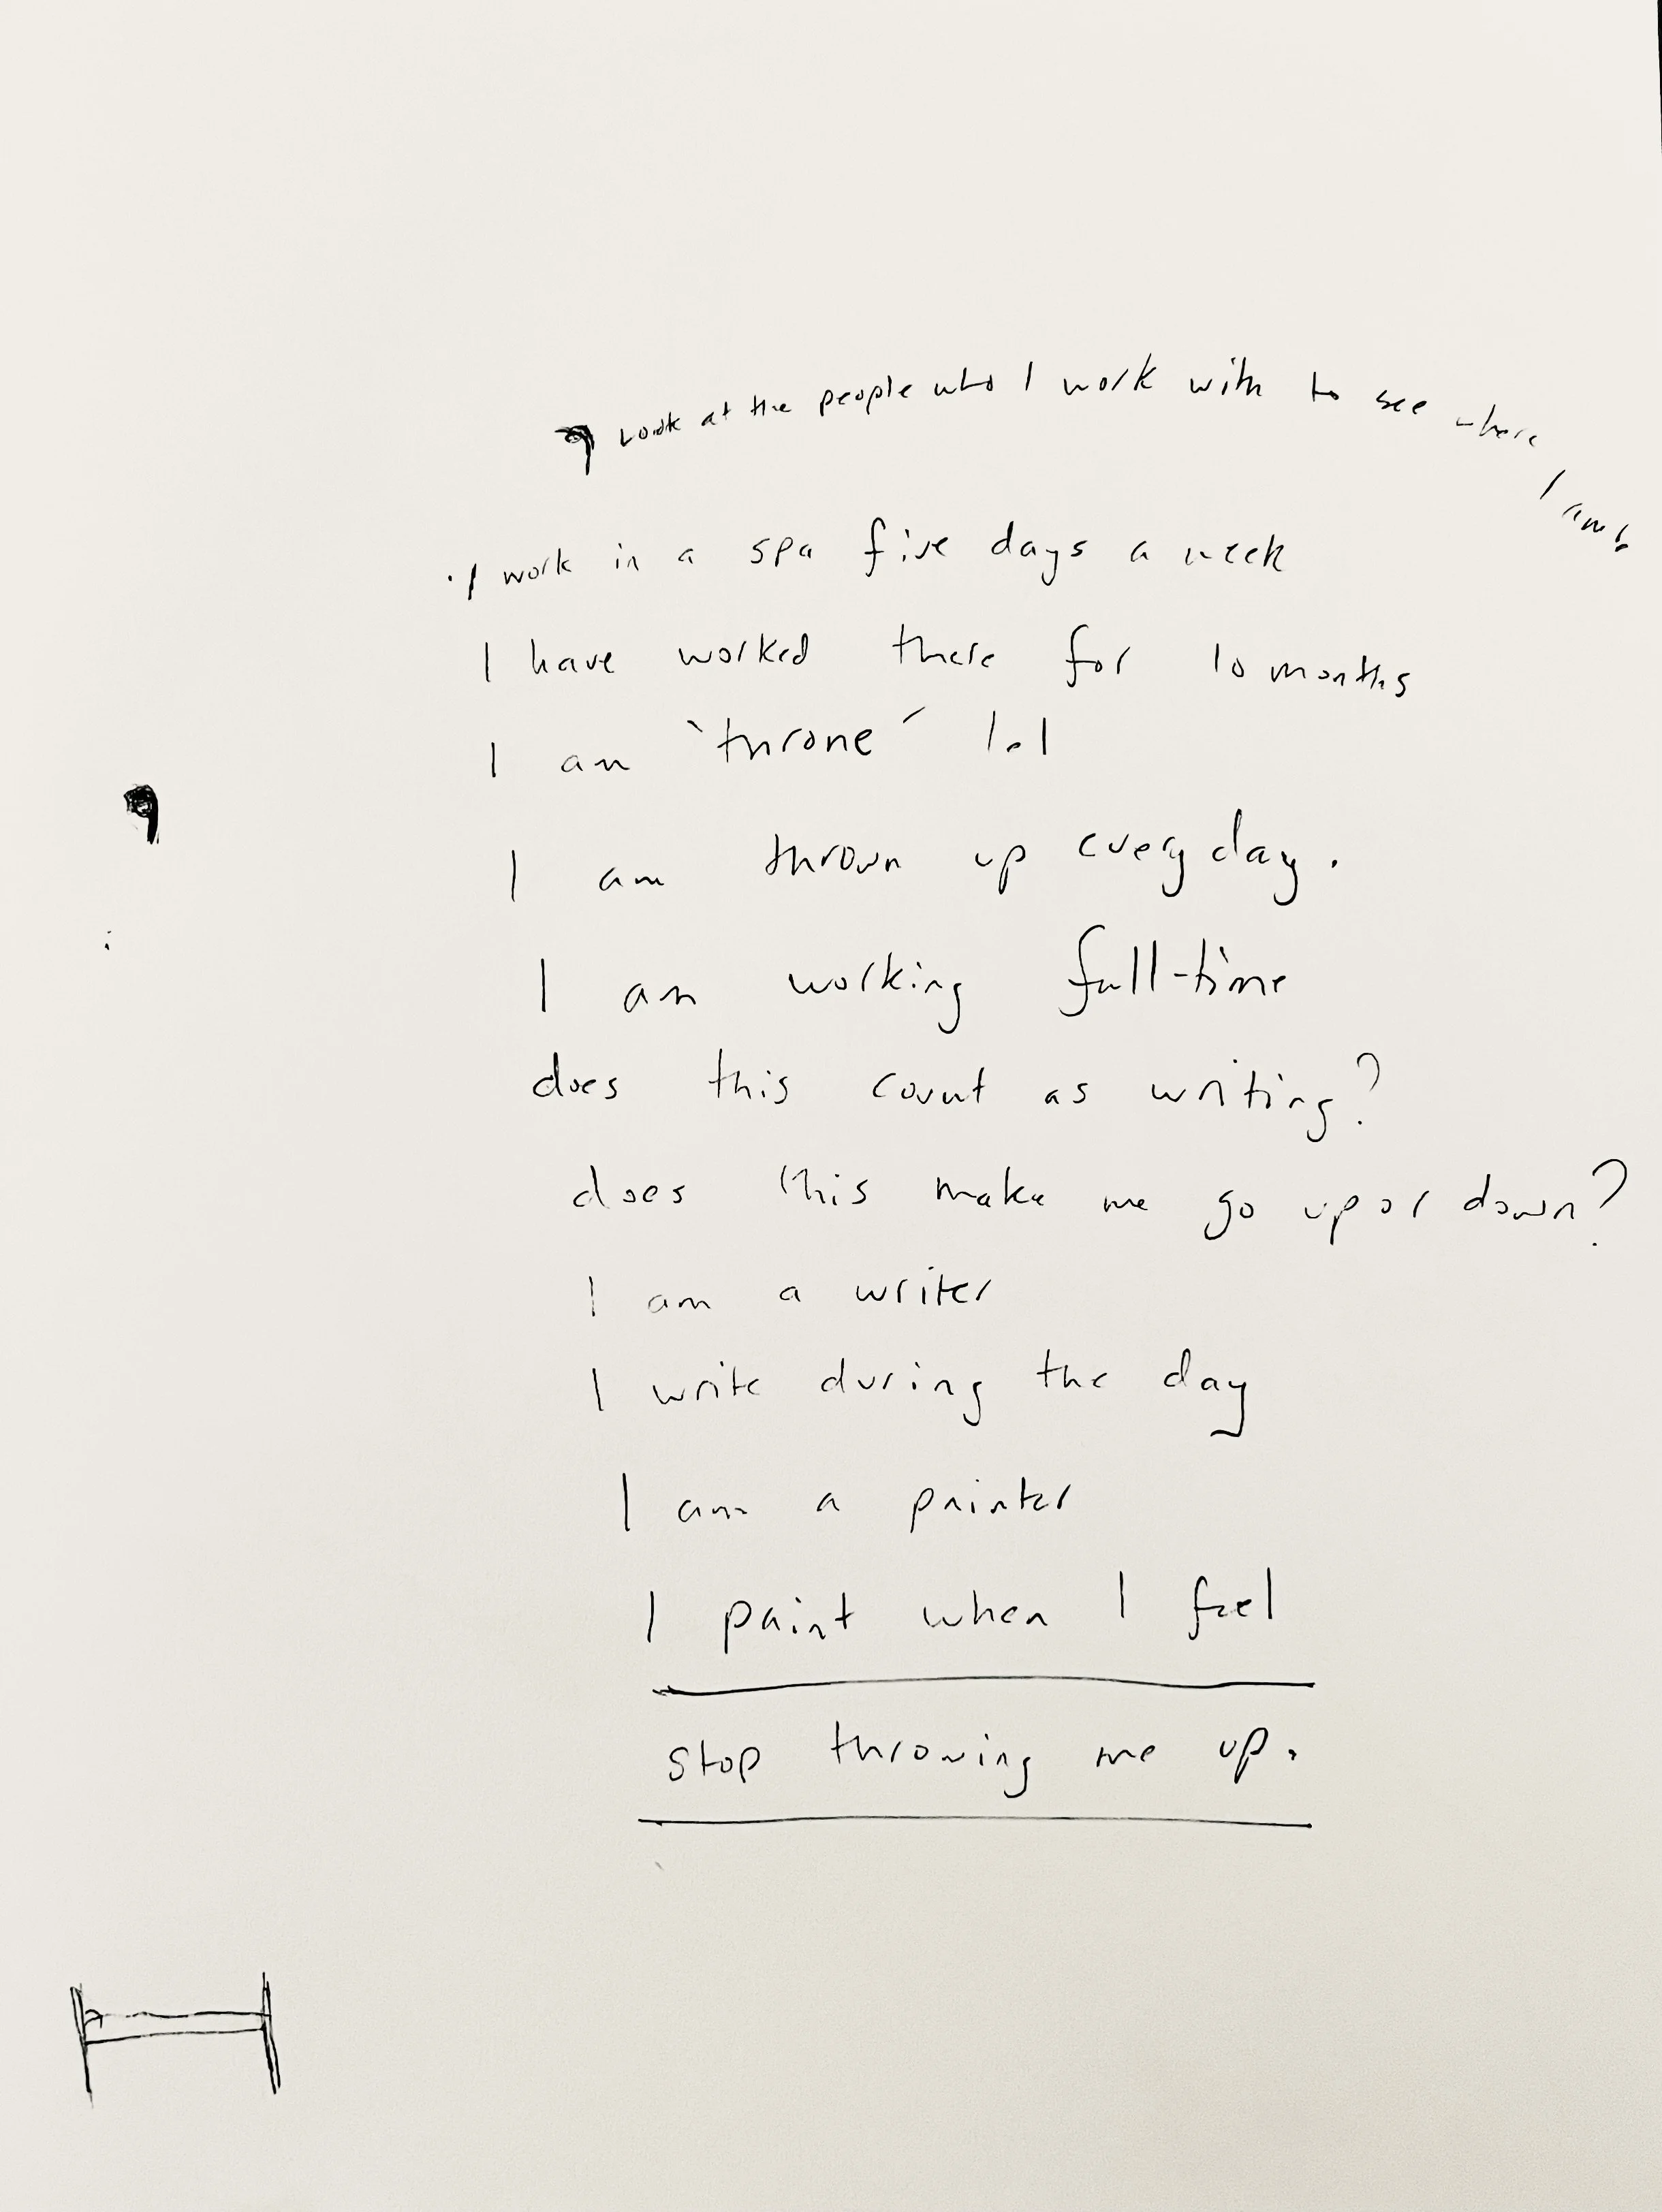 Look at the people who I work with to see where I am
I work in a spa five days a week
I have worked there for 10 months
I am `throne´ lol
I am thrown up everyday.
I am working full-time
does this count as writing?
does this make me go up or down?
I am a writer
I write during the day
I am a painter
I paint when I feel
stop throwing me up.